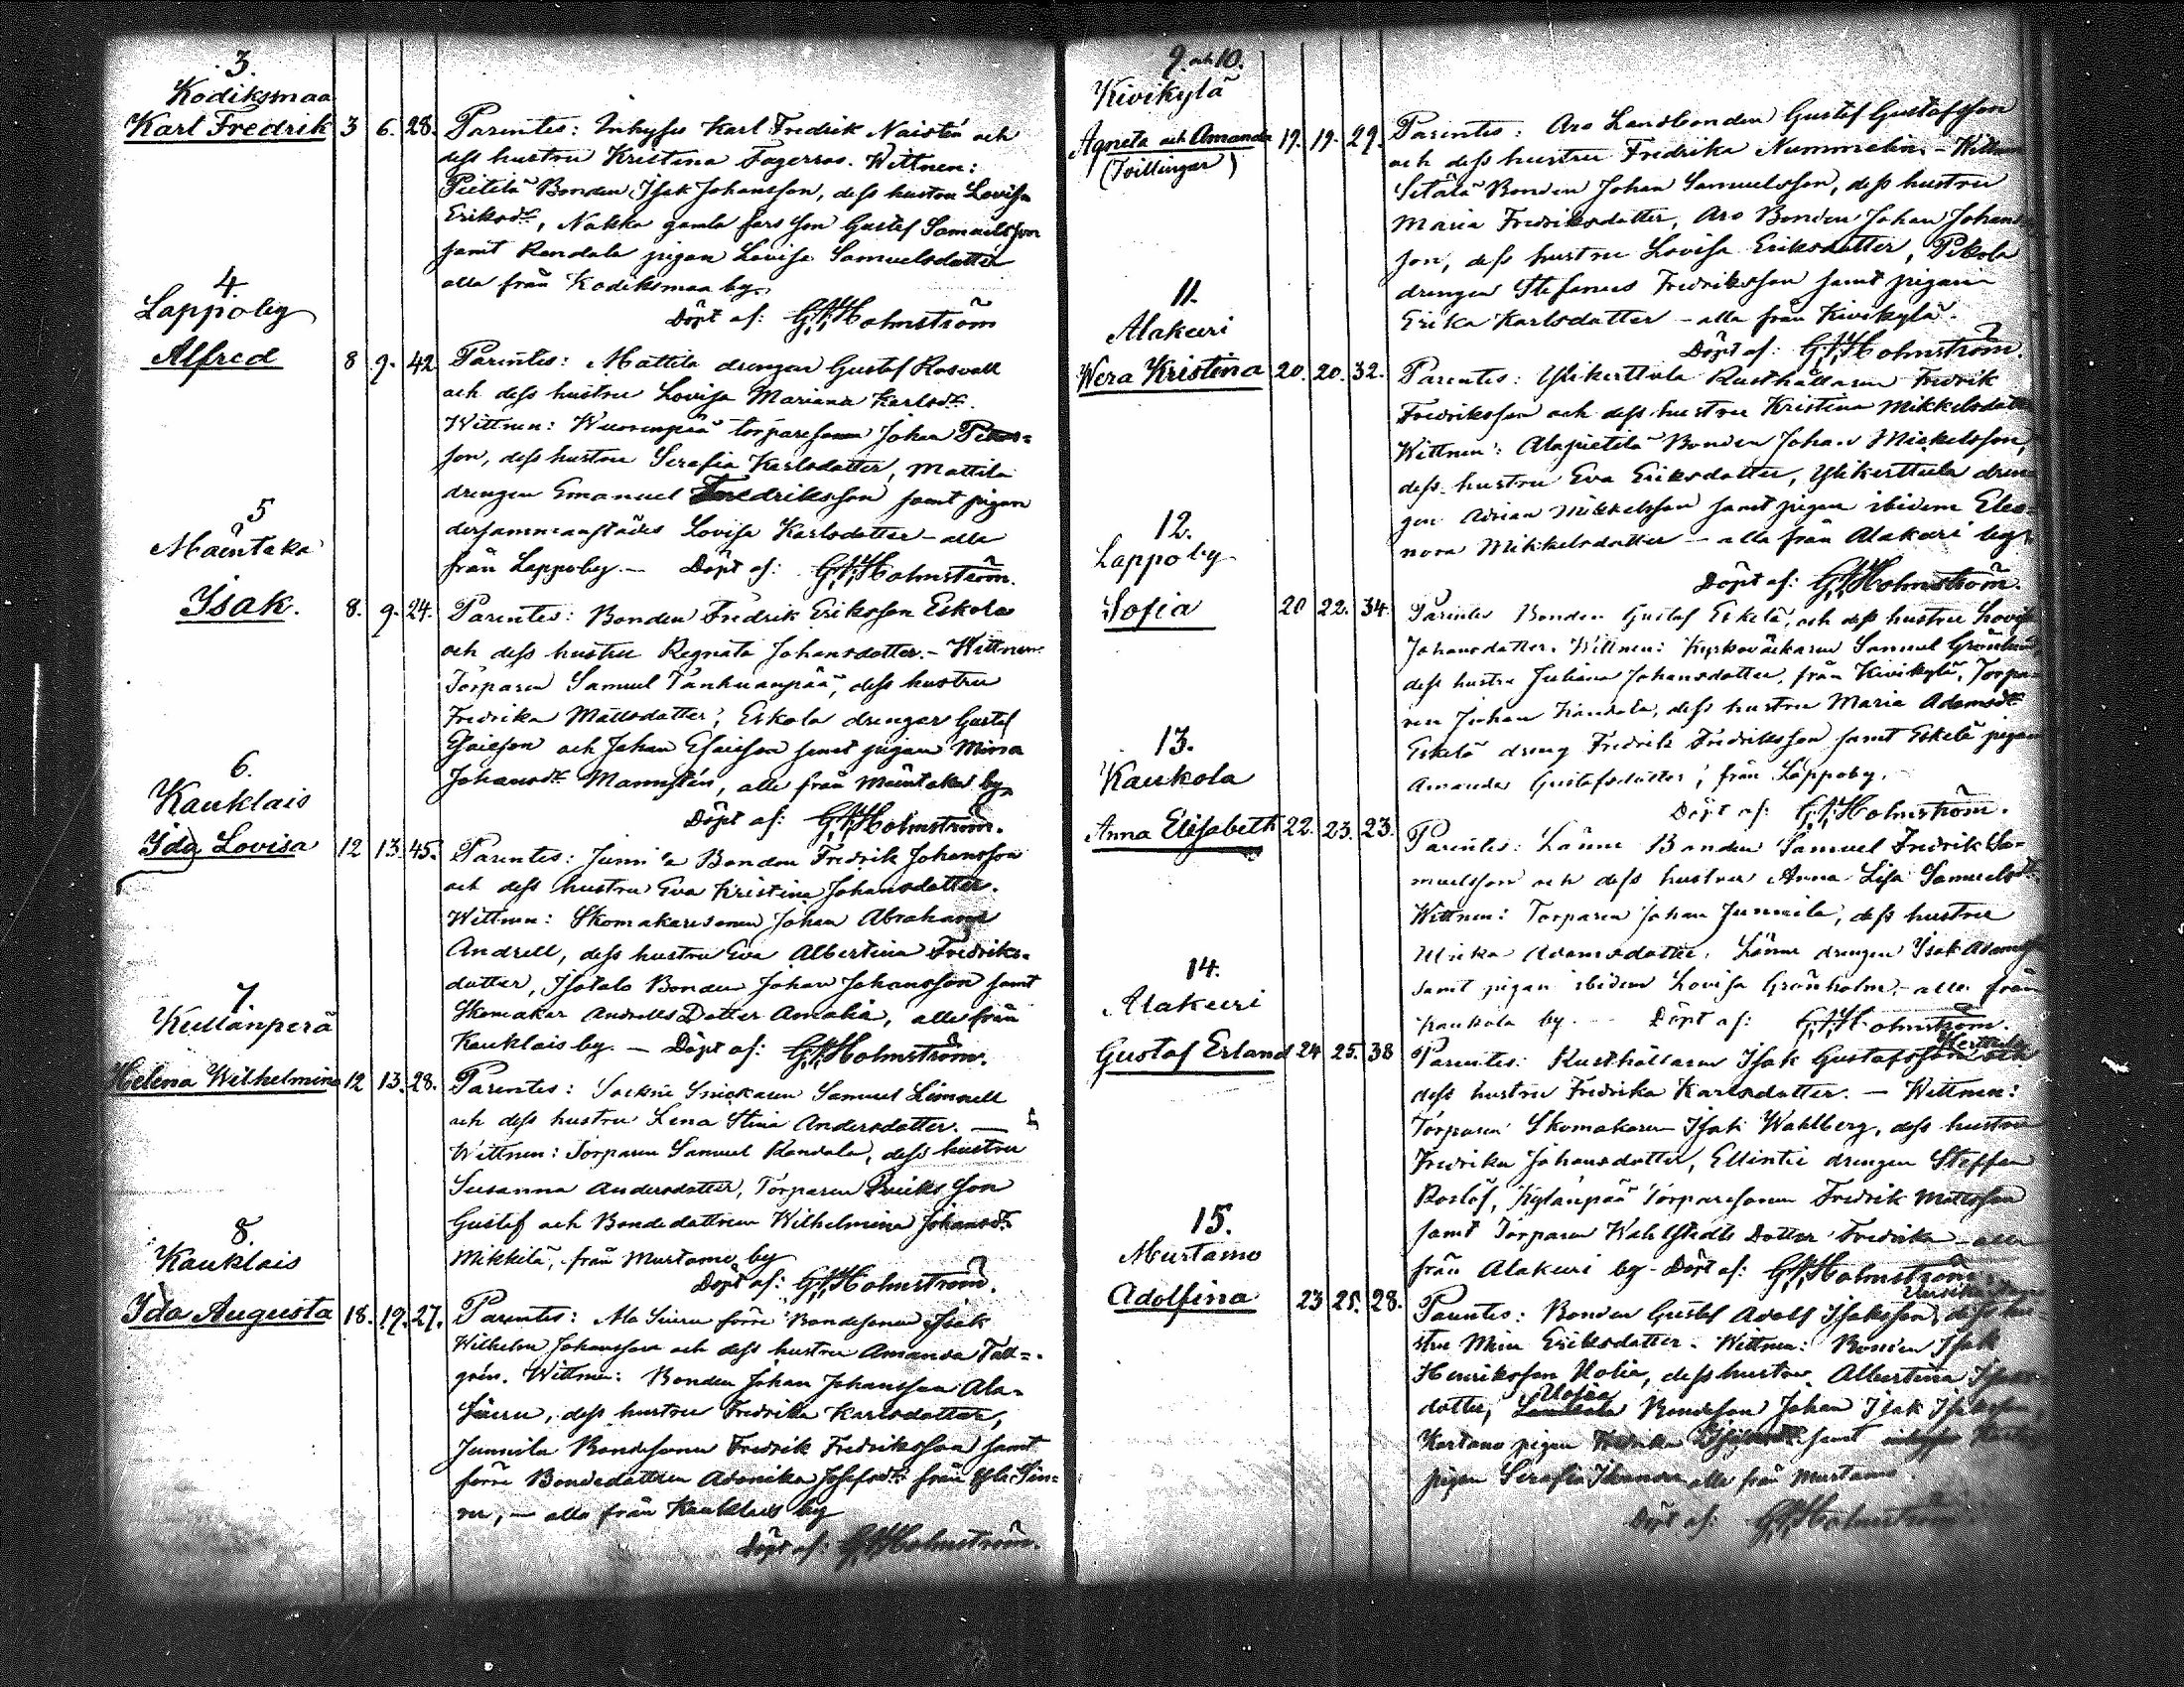 3.
Kodiksmaa
Karl Fredrik 3 6. 28. Parentes: Inhyses Karl Fredrik Naistén och
dess hustru Kristina Fagerroos. Wittnen:
Pietilä Bonden Isak Johansson, dess hustru Lovisa
Eriksdr, Nakka gamla fars son Gustef Samuelsson
samt Randala pigan Lovisa Samuelsdotter
alla från Kodiksmaa by.
Döpt af: G.A. Holmström
4.
Lappoby
Alfred 8 9. 42 Parentes: Mattila drengen Gustaf Rosvall
och dess hustru Lovisa Mariana Karlsdr.
Wittnen: Wuorenpää torparesonen Johan
son, dess hustru Serafia Karlsdotter, Mattila
drengen Emanuel Fredriksson samt pigan
dersammanstädes Lovisa Karlsdotter – alla
från Lappoby. – Döpt af: G.A. Holmström.
5
Mäntaka
Isak. 8. 9. 24. Parentes: Bonden Fredrik Eriksson Eskola
och dess hustru Regnata Johansdotter. – Wittnen:
Torparen Samuel Tanhuanpää, dess hustru
Fredrika Mattsdotter, Eskola drengar Gustef
Esaiesson och Johan Esaiesson samt pigan Minna
Johansdr Mannstén, alla från Mäntaka by.
Döpt af: G.A. Holmström.
6.
Kauklais
Ida Lovisa 12 13 45. Parentes: Junnila Bonden Fredrik Johansson
och dess hustru Eva Kristina Johansdotter.
Wittnen: Skomakaresonen Johan Abraham
Andrell, dess hustru Eva Albertina Fredriks-
dotter, Isotalo Bonden Johan Johansson samt
Skomakar Andrells Dotter Amalia, alla från
Kauklais by. – Döpt af: G.A. Holmström.
7.
Kullanperä
Helena Wilhelmina 12 13. 28. Parentes: Sockne Snickaren Samuel Limnell
och dess hustru Lena Stina Andersdotter. –
Wittnen: Torparen Samuel Randala, dess hustru
Susanna Andersdotter, Torparen son
Gustef och Bondedottren Wilhelmina Johansdr
Mikkilä, från Murtamo by
Döpt af: G.A. Holmström.
8.
Kauklais
Ida Augusta 18. 19. 27. Parentes: Ala Sinru förre Bondesonen Isak
Wilhelm Johansson och dess hustru Amanda Tall=
grén. Wittnen: Bonden Johan Johansson Ala-
Sinru, dess hustru Fredrika Karlsdotter,
Junnila Bondesonen Fredrik Fredriksson samt
förre Bondedottren Adonika Josefsdr från Yli-Sin-
ru, – alla från Kauklais by
Döpt af: G.A. Holmström.
9. och 10.
Kivikylä
Agneta och Amanda 19. 19. 29. Parentes: Aro Landbonden Gustef Gustafsson
(Tvillingar) och dess hustru Fredrika Nummelin. – Wittnen
Setälä Bonden Johan Samuelsson, dess hustru
Maria Fredriksdotter, Aro Bonden Johan Johans-
son, dess hustru Lovisa Eriksdotter, Pikola
drengen Stefanus Fredriksson samt pigan
Erika Karlsdotter – alla från Kivikylä.
Döpt af: G.A. Holmström.
11.
Alakuri
Wera Kristina 20. 20. 32. Parentes: Ylikerttula Rusthållaren Fredrik
Fredriksson och dess hustru Kristina Mikkelsdotter
Wittnen: Alapietilä Bonden Johan Mickelsson,
dess hustru Eva Eriksdotter, Ylikerttula dren-
gen Adrian Mikkelsson samt pigan ibidem Eleo-
nora Mikkelsdotter – alla från Alakuri by.
Döpt af: G.A. Holmström.
12.
Lappoby
Sofia 20 22. 34. Parentes Bonden Gustaf Eskelä, och dess hustru Lovisa
Johansdotter. Wittnen: Kyrkoväktaren Samuel Grönlund
dess hustru Juliana Johansdotter, från Kivikylä, Torpa-
ren Johan, dess hustru Maria Adamsdr
Eskelä dreng Fredrik Fredriksson samt Eskelä pigan
Amanda Gustafsdotter, från Lappoby.
Döpt af: G.A. Holmström.
13.
Kaukola
Anna Elisabeth 22. 23. 23. Parentes: Länne Bonden Samuel Fredrik Sa-
muelsson och dess hustru Anna Lisa Samuelsdr.
Wittnen: Torparen Johan Junnila, dess hustru
Ulrika Adamsdotter, Länne drengen Isak Adamsson
samt pigan ibidem Lovisa Grönholm, – alla från
Kaukola by. – Döpt af: G.A. Holmström.
14.
Alakuri
Gustaf Erland 24 25. 38 Parentes: Rusthållaren Isak Gustafsson Kerttula och
dess hustru Fredrika Karlsdotter. – Wittnen:
Torparen Skomakaren Isak Wahlberg, dess hustru
Fredrika Johansdotter, Ellintie drengen Steffan
Roslöf, Kylänpää Torparesonen Fredrik Mattsson
samt Torparen Wahlstedts Dotter Fredrika – alla
från Alakuri by – Döpt af: G.A. Holmström.
15.
Murtamo
Adolfina 23 25. 28. Parentes: Bonden Gustef Adolf Isaksson, dess hu-
stru Mina Eriksdotter. Wittnen: Bonden Isak
Henriksson Uolia, dess hustru Albertina
dotter, Uolia Bondeson Johan Isak Isaksson,
Kartano pigan Fredrika samt
pigan Serafia alla från Murtamo.
Döpt af: G.A. Holmström.